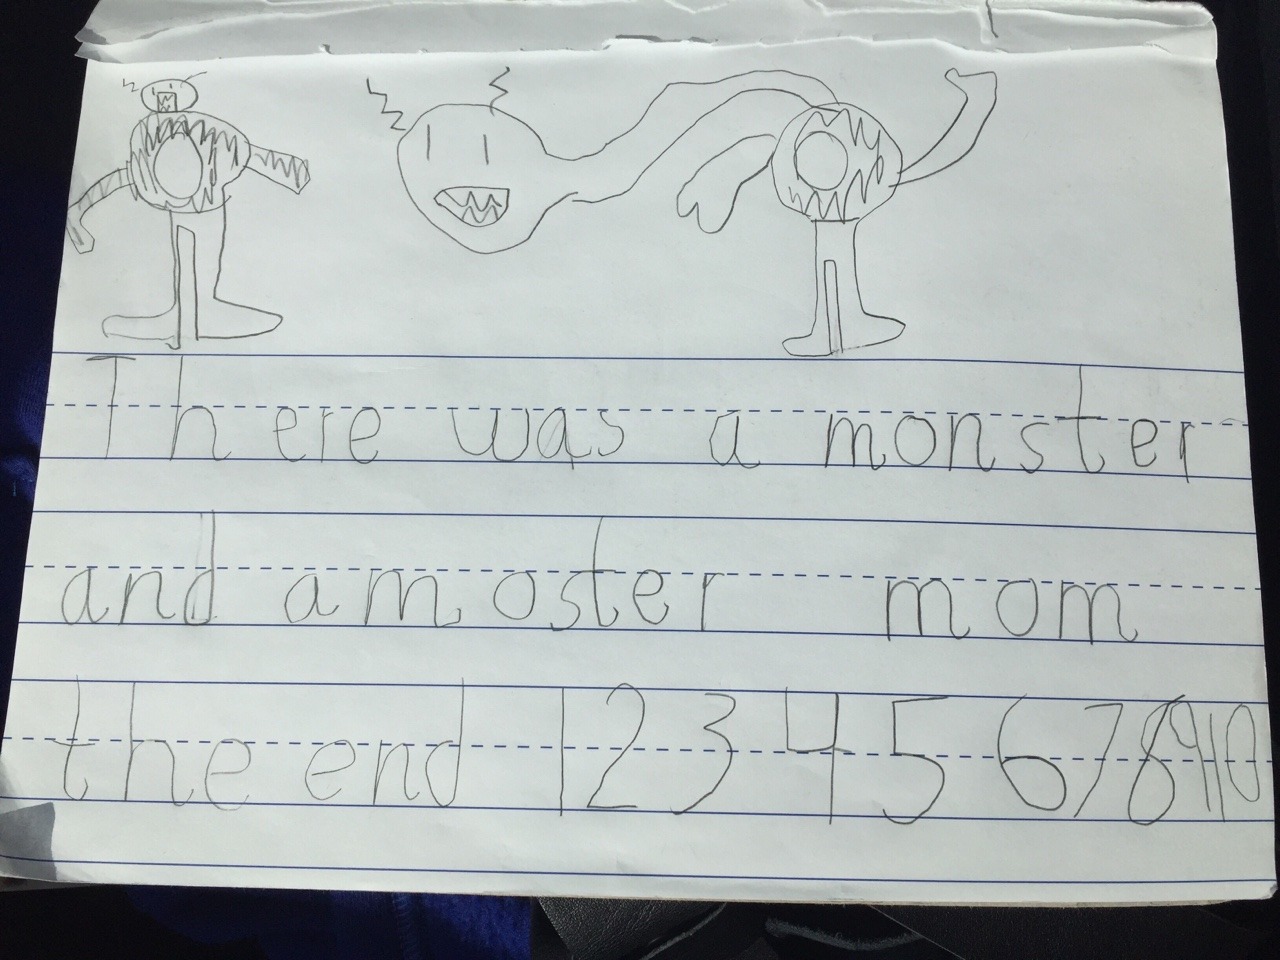 There was a monster
and a moster mom
the end 1 2 3 4 5 6 7 8 9 10